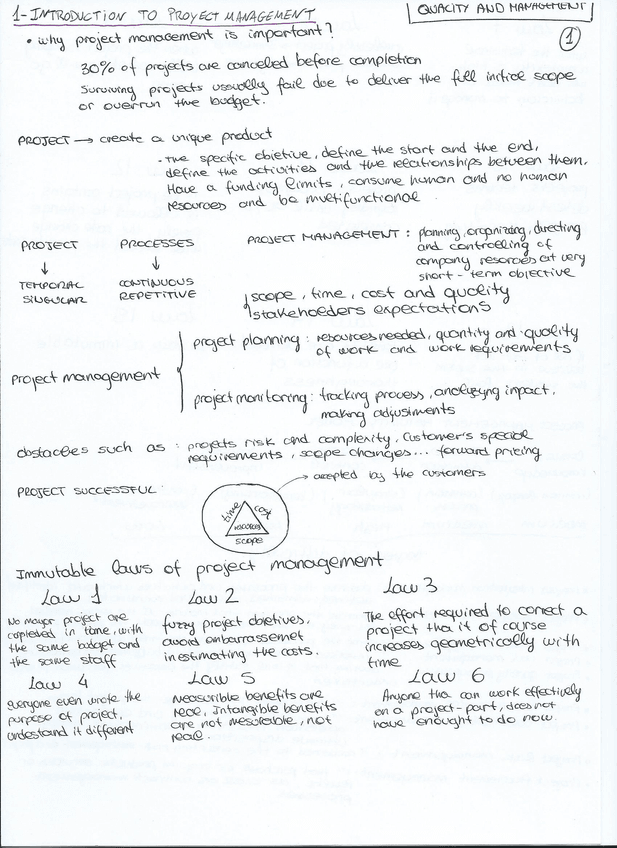 1-INTRODUCTION TO PROYECT MANAGEMENT
QUALITY AND MANAGEMENT
1
• why project management is important?
30% of projects are canceled before completion
Surviving projects ususally fail due to deliver the full initial scope
or overrun the budget.
PROJECT → create a unique product
- the specific objetive, define the start and the end,
define the activities and the relationships between them.
Have a funding limits, consume human and no human
resources and be multifunctional
PROJECT
PROCESSES
↓
↓
TEMPORAL
SINGULAR
CONTINUOUS
REPETITIVE
PROJECT MANAGEMENT : planning, organizing, directing
and controlling of
company resorces at very
short-term objective
scope, time, cost and quality
stakeholders expectations
project management
project planning : resources needed, quantity and quality
of work and work requirements
project monitoring : tracking process, analysyng impact,
making adjustments
obstacles such as : projects risk and complexity, Customer's special
requirements, scope changes... forward pricing
PROJECT SUCCESSFUL:
→ accepted by the customers
time
cost
resources
scope
Immutable laws of project management
Law 1
No major project are
copleted in time, with
the same budget and
the same staff
Law 2
fuzzy project objetives,
avoid embarrassemet
in estimating the costs.
Law 3
The effort required to correct a
project tha it of course
increases geometrically with
time
Law 4
everyone even wrote the
purpose of project,
understand it different
Law 5
Measurible benefits are
real, Intangible benefits
are not mesurable, not
real.
Law 6
Anyone tha can work effectively
on a project-part, does not
have enought to do now.